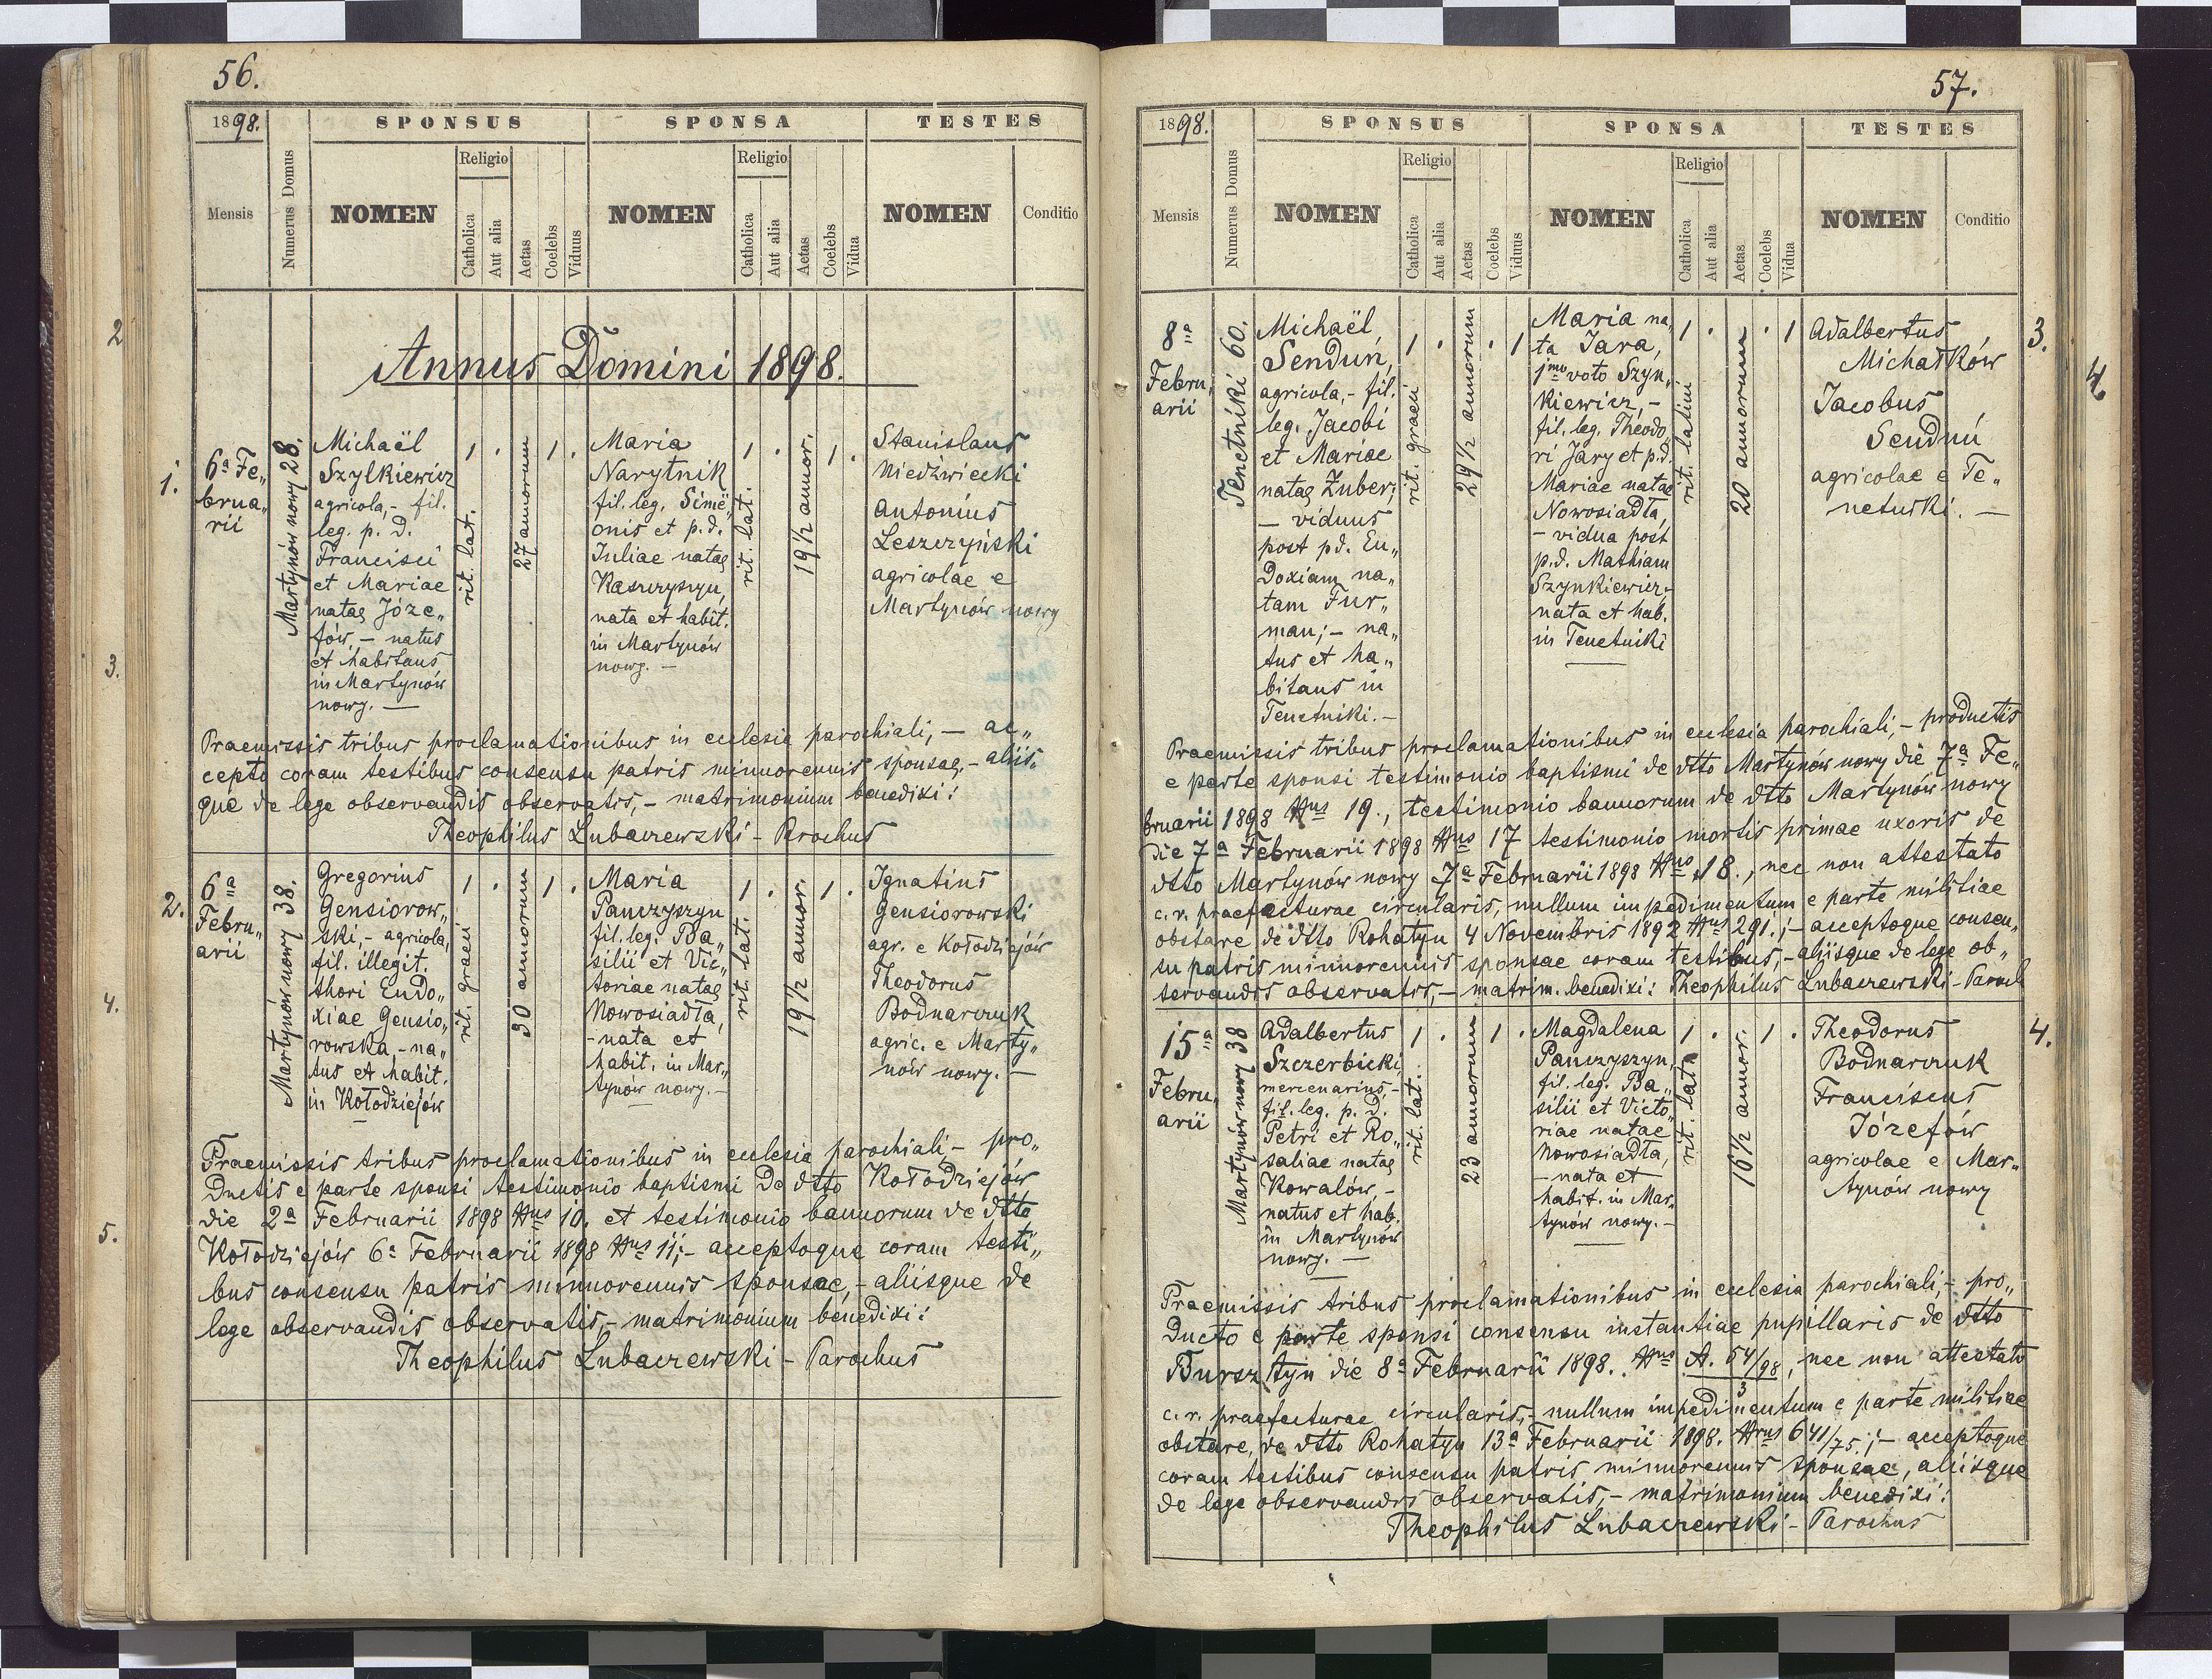 56.
1898.
SPONSUS
SPONSA
TESTES
Mensis
Numerus Domus
NOMEN
Religio
Catholica
Aut alia
Aetas
Coelebs
Viduus
NOMEN
Religio
Catholica
Aut alia
Aetas
Coelebs
Vidua
NOMEN
Conditio
Annus Domini 1898.
1.
6ª Fe„
brua„
rii
Martynów nowy 28.
Michaël
Szylkiewicz
agricola,- fil.
leg. p. d.
Francisci
et Mariae
natae Józe„
fów, - natus
et habitans
in Martynów
nowy. -
1
.
rit. lat.
27 annorum
1
.
Maria
Narytnik
fil. leg. Sime„
onis et p. d.
Juliae natae
Kaszczyszyn,
nata et habit.
in Martynów
nowy. -
1
.
rit. lat.
19 1/2 annor.
1
.
Stanislaus
Niedźwiecki
Antonius
Leszczyński
agricolae e
Martynów nowy
Praemissis tribus proclamationibus in ecclesia parochiali, - ac„
cepto coram testibus consensu patris minorennis sponsae, - aliis„
que de lege observandis observatis, - matrimonium benedixi:
Theophilus Lubaczewski - Parochus
2.
6ª
Febru„
arii
Martynów nowy 38.
Gregorius
Gensiorow„
ski, - agricola,
fil. illegit.
thori Eudo„
xiae Gensio„
rowska, - na„
tus et habit.
in Kołodziejów
1
.
rit. graeci
30 annorum
1
.
Maria
Panczyszyn
fil. leg. Ba„
silii et Vic„
toriae natae
Nowosiadła,
- nata et
habit. in Mar„
tynów nowy. -
1
.
rit. lat.
19 1/2 annor.
1
.
Ignatius
Gensiorowski
agr. e Kołodziejów
Theodorus
Bodnarczuk
agric. e Marty„
nów nowy. -
Praemissis tribus proclamationibus in ecclesia parochiali, - pro„
ductis e parte sponsi testimonio baptismi de dtto Kołodziejów
die 2ª Februarii 1898 Nrus 10. et testimonio bannorum de dtto
Kołodziejów 6ª Februarii 1898 Nrus 11; - acceptoque coram testi„
bus consensu patris minorennis sponsae, - aliisque de
lege observandis observatis, - matrimonium benedixi:
Theophilus Lubaczewski - Parochus
2
3.
4.
5.
57.
1898.
SPONSUS
SPONSA
TESTES
Mensis
Numerus Domus
NOMEN
Religio
Catholica
Aut alia
Aetas
Coelebs
Viduus
NOMEN
Religio
Catholica
Aut alia
Aetas
Coelebs
Vidua
NOMEN
Conditio
8ª
Febru„
arii
Tenetniki 60.
Michaël
Senduń,
agricola, - fil.
leg. Jacobi
et Mariae
natae Zuber;
- viduus
post pd. Eu„
doxiam na„
tam Fur„
man; - na„
tus et ha„
bitans in
Tenetniki. -
1
.
rit. graeci
29 1/2 annorum
.
1
Maria na„
ta Jara,
1mo voto Szyn„
kiewicz, -
fil. leg. Theodo„
ri Jary et p.d.
Mariae natae
Nowosiadła,
- vidua post
p.d. Mathiam
Szynkiewicz,
nata et hab.
in Tenetniki
1
.
rit. latini
20 annorum
.
1
Adalbertus
Michałków
Jacobus
Senduń
agricolae e Te„
netniki. -
3.
Praemissis tribus proclamationibus in ecclesia parochiali, - productis
e parte sponsi testimonio baptismi de dtto Martynów nowy die 7ª Fe„
bruarii 1898 Nrus 19., testimonio bannorum de dtto Martynów nowy
die 7ª Februarii 1898 Nrus 17 testimonio mortis primae uxoris de
dtto Martynów nowy 7ª Februarii 1898 Nrus 18., nec non attestato
c. r. praefecturae circularis, nullum impedimentum e parte militiae
obstare de dtto Rohatyn 4 Novembris 1892 Nrus 291.; - acceptoque consen„
su patris minorennis sponsae coram testibus, - aliisque de lege ob„
servandis observatis, - matrim. benedixi: Theophilus Lubaczewski - Paroch
15ª
Febru„
arii
Martynów nowy 38
Adalbertus
Szczerbicki,
mercenarius, -
fil. leg. p. d.
Petri et Ro„
saliae natae
Kowalów, -
natus et hab.
in Martynów
nowy. -
1
.
rit. lat.
23 annorum
1
.
Magdalena
Panczyszyn,
fil. leg. Ba„
silii et Victo„
riae natae
Nowosiadła,
- nata et
habit. in Mar„
tynów nowy. -
1
.
rit. lat.
16 1/2 annor.
1
.
Theodorus
Bodnarczuk
Franciscus
Józefów
agricolae e Mar„
tynów nowy
4.
Praemissis tribus proclamationibus in ecclesia parochiali, - pro„
ducto e parte sponsi consensu instantiae pupillaris de dtto
Bursztyn die 8ª Februarii 1898. Nrus A. 54/98, nec non attestato
3
c. r. praefecturae circularis, - nullum impedimentum e parte militiae
obstare, de dtto Rohatyn 13ª Februarii 1898. Nrus 641/75.; - acceptoque
coram testibus consensu patris minorennis sponsae, aliisque
de lege observandis observatis, - matrimonium benedixi:
Theophilus Lubaczewski - Parochus
4